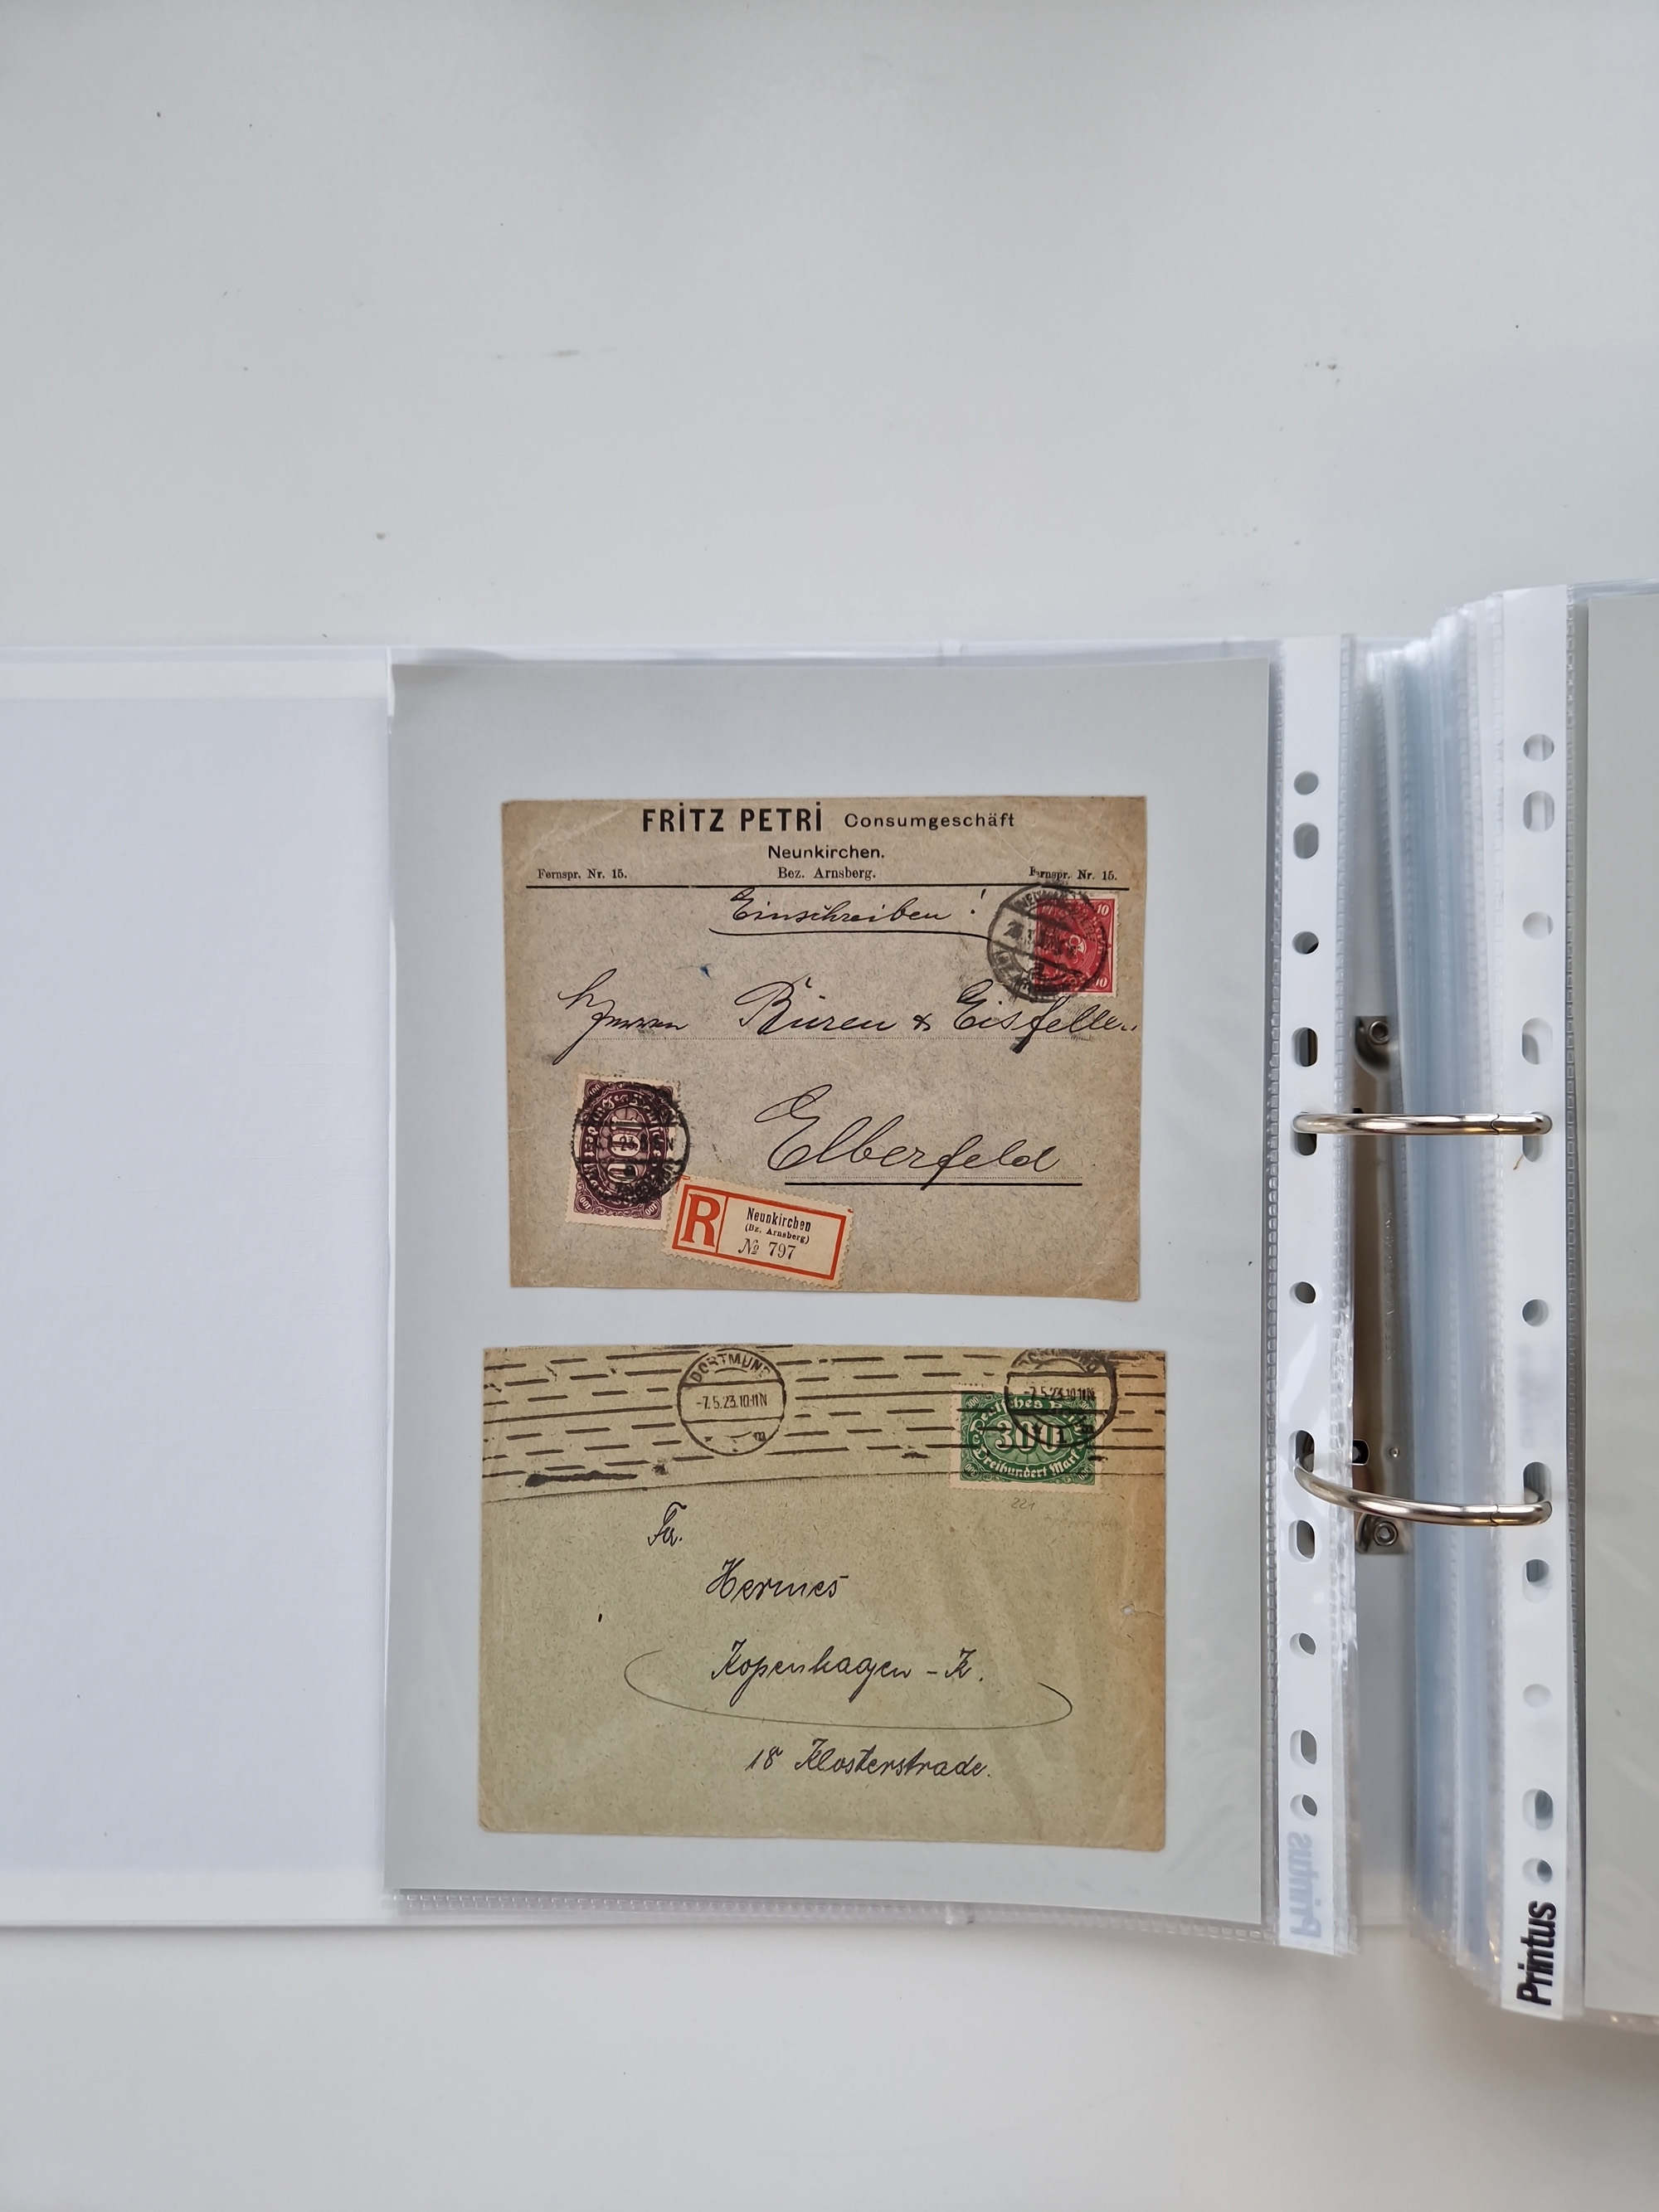 FRITZ PETRI Consumgeschäft
Neunkirchen.
Fernspr. Nr. 15. Bez. Arnsberg. Fernspr. Nr. 15.
Einschreiben!
10
10
Herren Büren & Eisfeller.
100
Elberfeld
R
Neunkirchen
(Bz. Arnsberg)
№ 797
DORTMUND
-7.5.23.10-11N
DORTMUND
-7.5.23.10-11N
Deutsches Reich
300
Dreihundert Mark
221
Fa.
Hermes
Kopenhagen-K.
18 Klosterstrade.
Printus
Printus